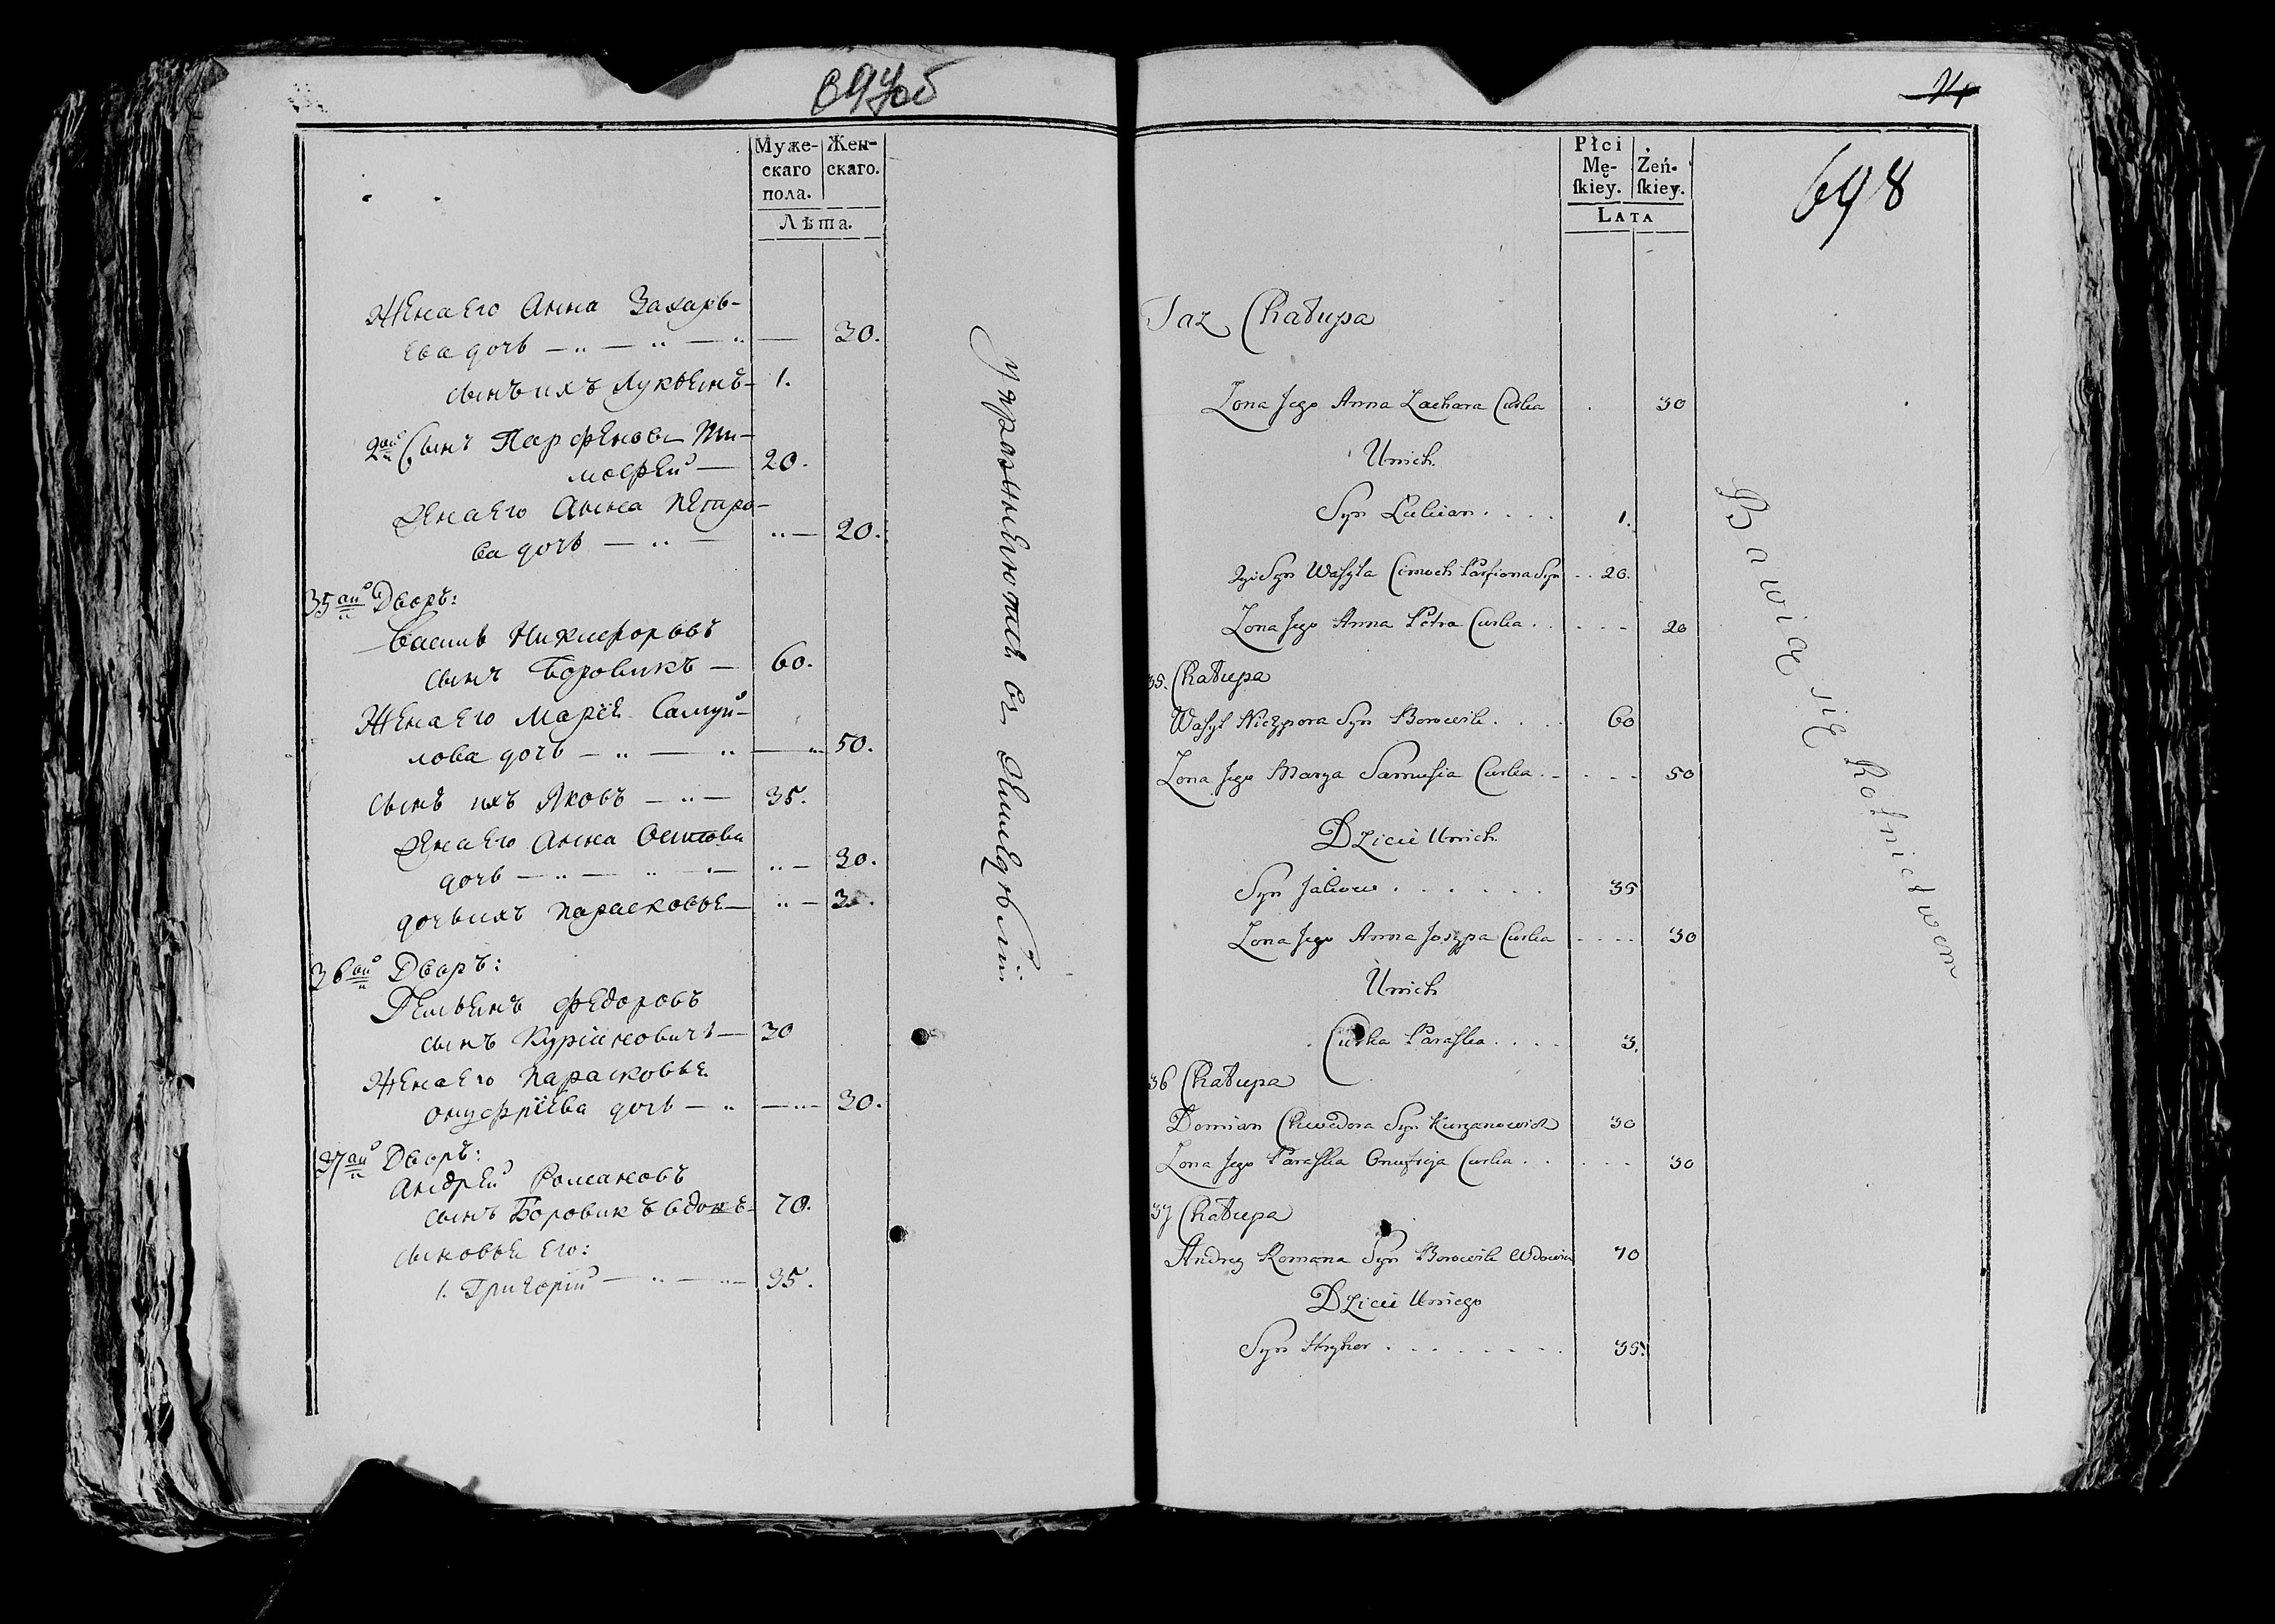 Муже-
скаго
пола.
Жен-
скаго.
Лѣта.
Жена Его Анна Захарь-
Ева дочь — „ — „ — „ — 30.
сынъ ихъ Лукьянъ - 1.
2ой Сынъ Парфеновъ Ти-
мофей — 20.
Жена Его Анна Петро-
ва дочь — „ — „ — 20.
35ой Дворъ:
Василь Никифоровъ
сынъ Боровикъ — 60.
Жена Его Марiя Самуй-
лова дочь — „ — „ — „ 50.
сынъ ихъ Яковъ — „ — 35.
Жена Его Анна Осипова
дочь — „ — „ — „ — 30.
дочь ихъ Парасковья — „ — 3.
36ой Дворъ:
Демьянъ Федоровъ
сынъ Курiяновичъ — 30
Жена Его Парасковья
Онуфрiева дочь — „ — „ — 30.
37ой Дворъ:
Андрей Романовъ
сынъ Боровикъ вдовъ - 70.
сыновья Его:
1. Григорiй — „ — „ — 35.
упражняются въ Земледѣлiи
24
698
Płci
Mę-
ſkiey.
Żeń-
ſkiey.
LATA
Taz Chałupa
Zona Jego Anna Zachara Curka . 30
Unich
Syn Lukian . . . . 1.
2gi Syn Wasyla Cimoch Parfiona Syn . . 20.
Zona Jego Anna Petra Curka . . . . . 20
35. Chałupa
Wasyl Niczypora Syn Borowik . . . . 60
Zona Jego Marya Samusia Curka . - . . . 50
Dzieci Unich
Syn Jakow . . . . . . 35
Zona Jego Anna Jozypa Curka . . . . 30
Unich
Curka Paraska . . . . 3.
36 Chałupa
Domian Chwedora Syn Kuryanowicz 30
Zona Jego Paraska Onufreja Curka . . . . . 30
37 Chałupa
Andrey Romana Syn Borowik Wdowiec 70
Dzieci Uniego
Syn Hryhor . . . . . . . . 35.
Bawią się Rolnictwem